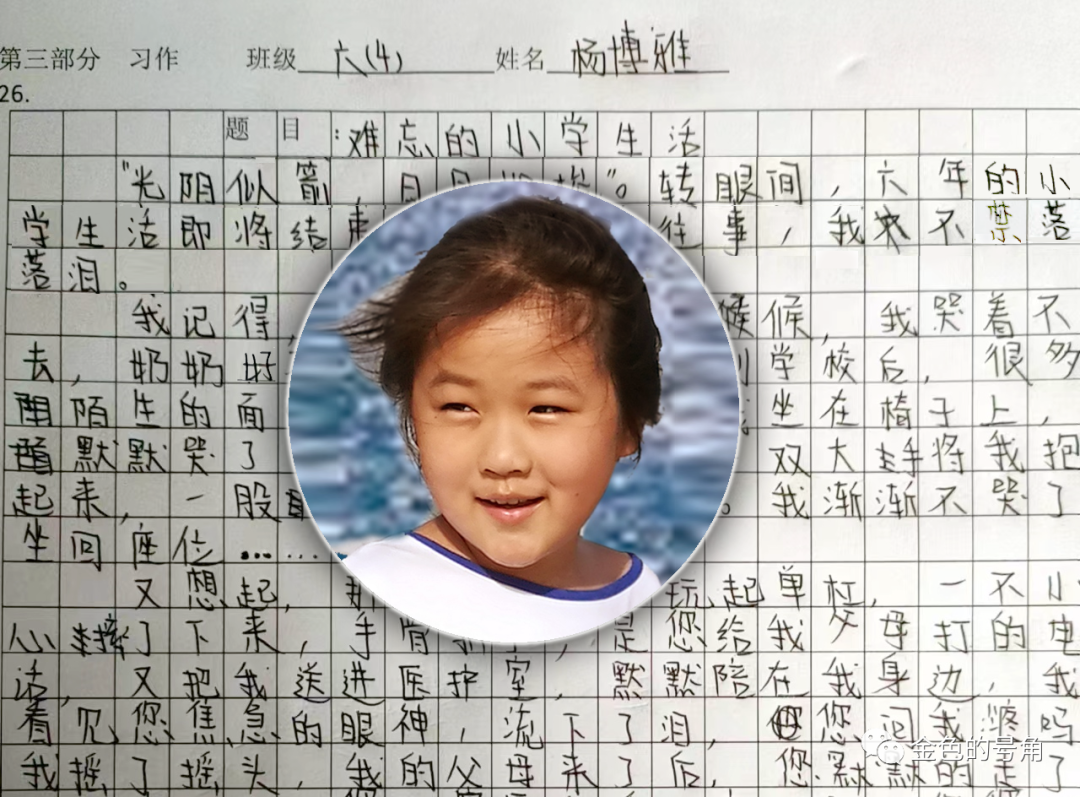 第三部分 习作 班级 六(4) 姓名 杨博雅
26.
题目:难忘的小学生活
"光阴似箭,日月 "。转眼间,六年的小
学生活即将结束 往事,我 不禁落
落泪。
我记得, 候候,我哭着不
去,奶奶好 学校后,很多
陌生的面 坐在椅子上,
默默哭了 双大 手将我抱
起来,一股 。我渐渐不哭了
坐回座位……
又想起, 玩起单杠,一不小
心 摔了下来,手骨 ,是您给我父母打的电
话,又把我送进医护室,默默陪在我身边,我
看见您焦急的眼神,流下了泪, 您问我疼吗
我摇了摇头,我的父母来了后,您默默的走了
金色的号角